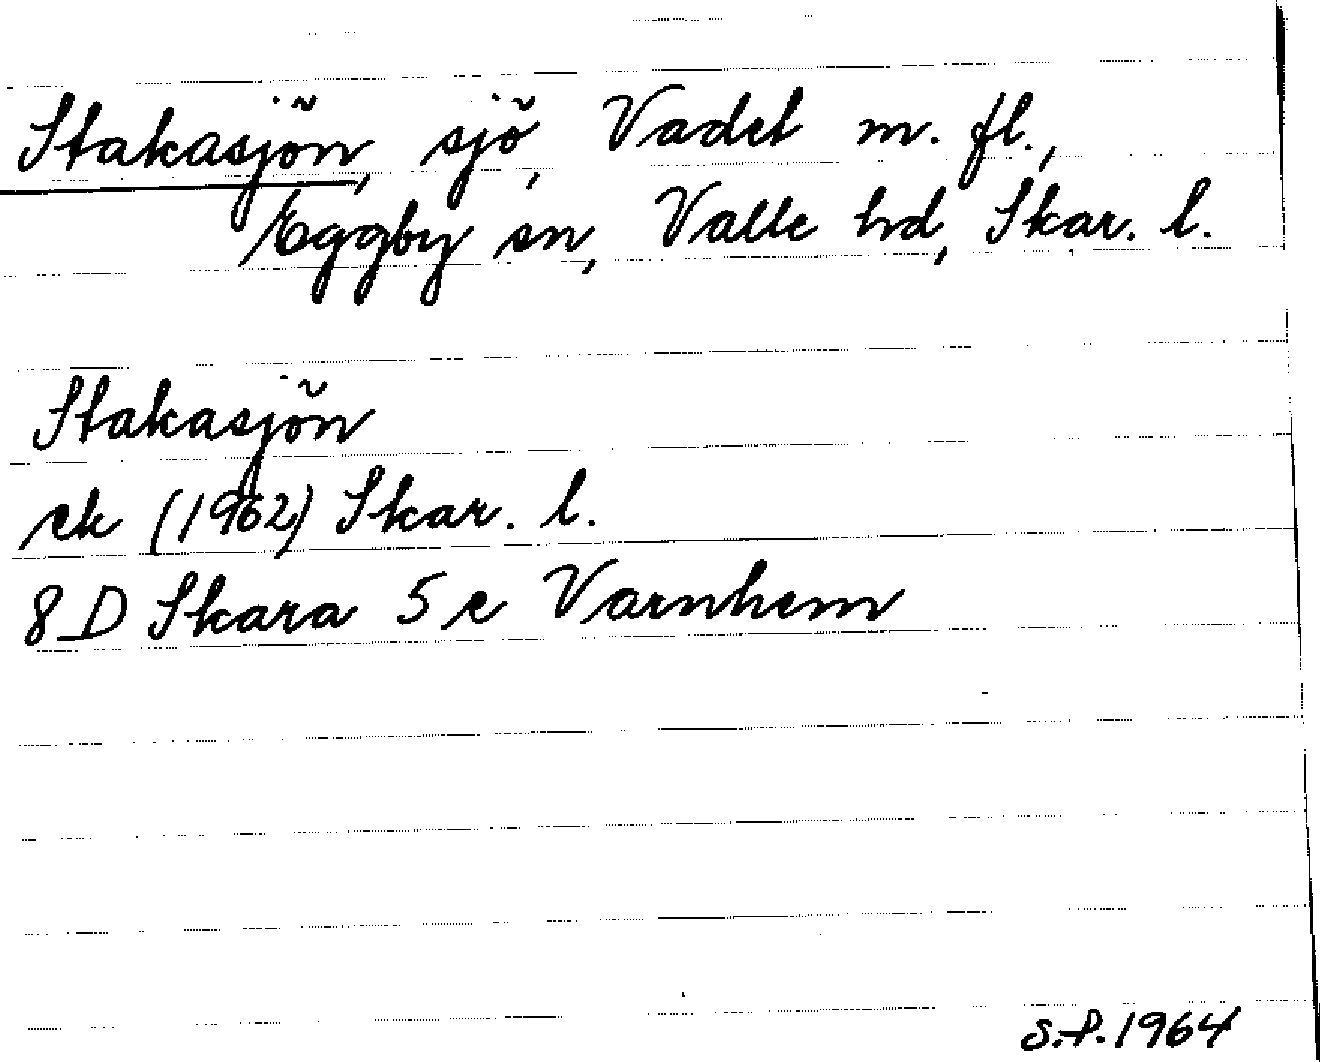 Stakasjön, sjö, Vadet m. fl.,
Eggby sn, Valle hd, Skar. l.
Stakasjön
ek (1962) Skar. l.
8 D Skara 5 e Varnhem
S.P. 1964